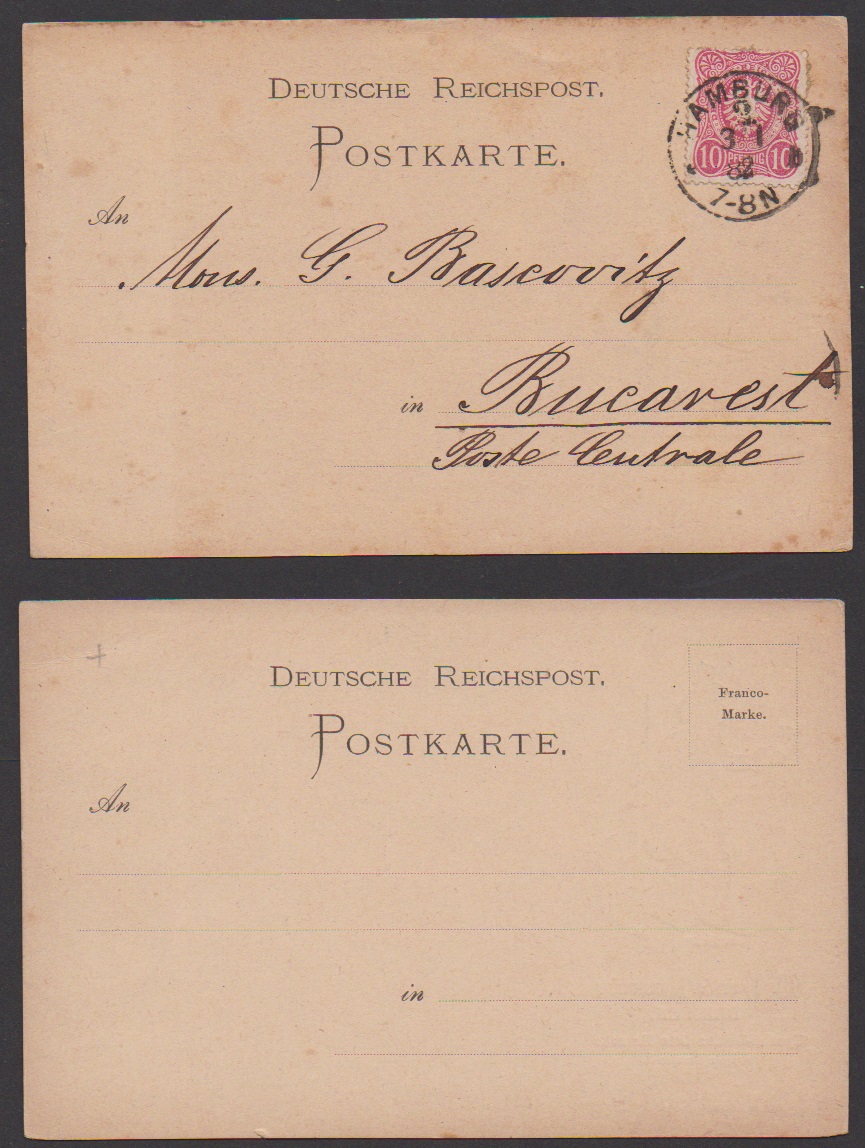 DEUTSCHE REICHSPOST.
POSTKARTE.
HAMBURG
3 1
82
7-8N
10 PFENNIG 10
An
Mons. G. Bascovitz
in Bucarest
Poste Centrale
DEUTSCHE REICHSPOST.
POSTKARTE.
Franco-
Marke.
An
in